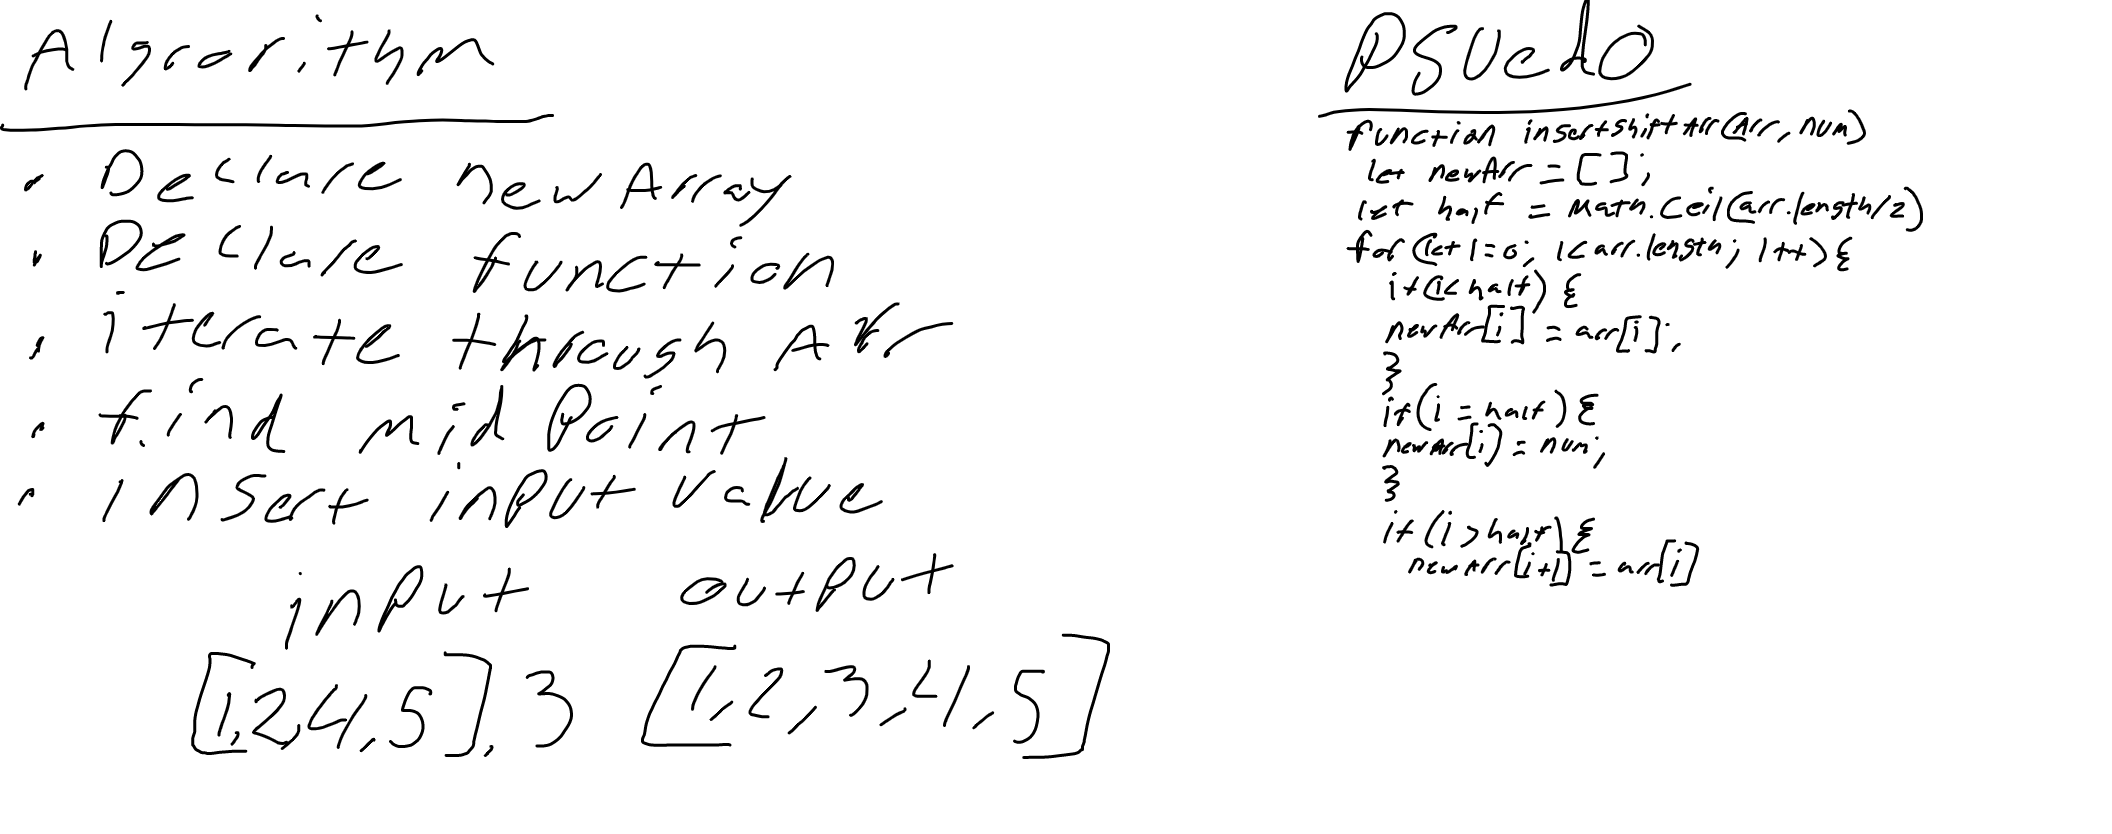 Algorithm
• Declare newArray
• Declare function
• iterate through Arr
• find midPoint
• insert input value
input output
[1,2,4,5],3 [1,2,3,4,5]
PSUedO
function insertshiftArr(Arr, num)
let newArr = [];
let half = Math.Ceil(arr.length/2)
for(let i=0; i<arr.length; i++){
if(i<half) {
newArr[i] = arr[i];
}
if(i = half) {
newArr[i] = num;
}
if(i>half) {
newArr[i+1] = arr[i]